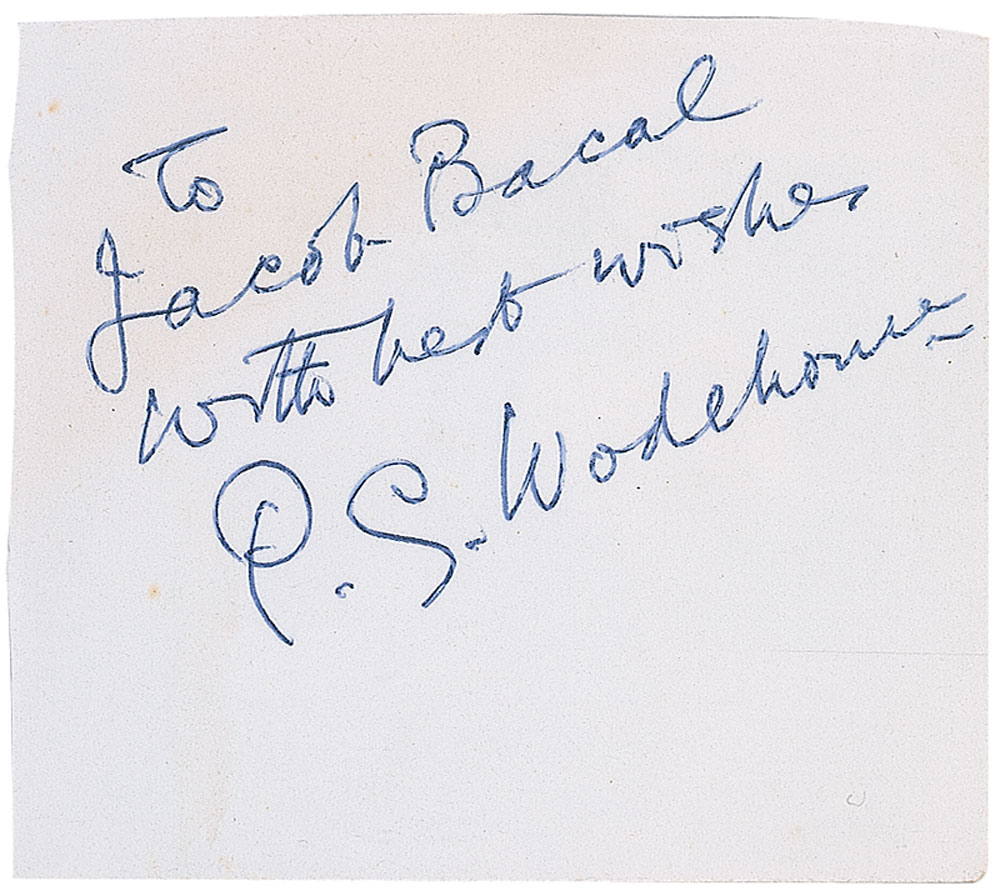 To
Jacob Bacal
with best wishes
P. G. Wodehouse